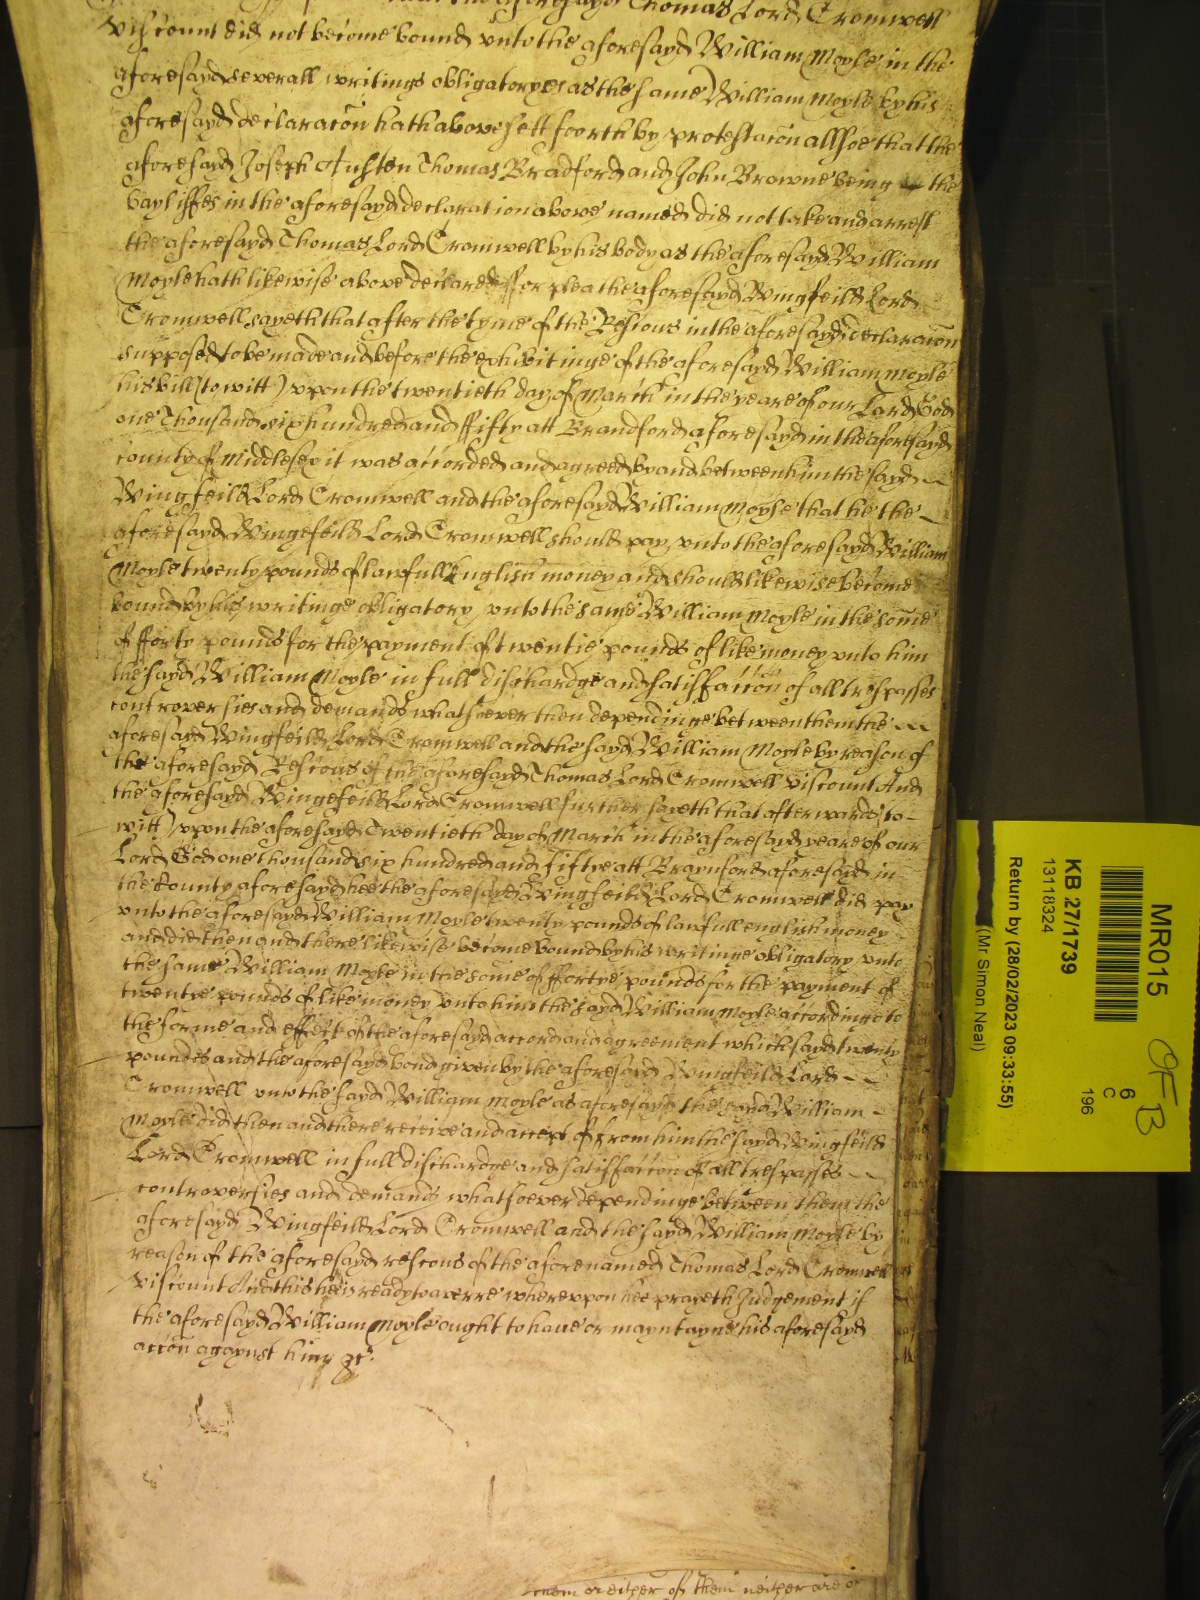 the aforesayd Thomas Lord Cromwell
viscount did not become bound unto the aforesayd William Moyle in the
aforesayd severall writings obligatoryes as the same William Moyle by his
aforesayd declaracon hath above sett foorth by protestacon allsoe that the
aforesayd Joseph Austen Thomas Bradford and John Browne being the
bayliffes in the aforesayd declaration above named did not take and arrest
the aforesayd Thomas Lord Cromwell by his body as the aforesayd William
Moyle hath likewise above declared ffor plea the aforesayd Wingfeild Lord
Cromwell sayeth that after the tyme of the Rescous in the aforesayd declaracon
supposed to be made and before the exhibitinge of the aforesayd William Moyle
his bill (to witt) upon the twentieth day of March in the yeare of our Lord God
one Thousand six hundred and ffifty att Brandford aforesayd in the aforesayd
county of Middlesex it was accorded and agreed by and between him the sayd
Wingfeild Lord Cromwell and the aforesayd William Moyle that he the
aforesayd Wingefeild Lord Cromwell should pay unto the aforesayd William
Moyle twenty pounds of lawfull English money and should likewise become
bound by his writinge obligatory unto the same William Moyle in the some
of fforty pounds for the payment of twentie pounds of like money unto him
the sayd William Moyle in full dischardge and satisffaccon of all trespasses
controversies and demands whatsoever then dependinge between them the
aforesayd Wingfeild Lord Cromwell and the sayd William Moyle by reason of
the aforesayd Rescous of the aforesayd Thomas Lord Cromwell viscount And
the aforesayd Wingefeild Lord Cromwell further sayeth that afterwards (to
witt) upon the aforesayd Twentieth day of March in the aforesayd yeare of our
Lord God one thousand six hundred and fiftye att Braynford aforesayd in
the County aforesayd hee the aforesayd Wingfeild Lord Cromwell did pay
unto the aforesayd William Moyle twenty pounds of lawfull english money
and did then and there likewise become bound by his writinge obligatory unto
the same William Moyle in the some of ffortye pounds for the payment of
twentye pounds of like money unto him the sayd William Moyle accordinge to
the forme and effect of the aforesayd accord and agreement which sayd twenty
poundes and the aforesayd bond given by the aforesayd Wingfeild Lord
Cromwell unto the sayd William Moyle as aforesayd the sayd William
Moyle did then and there receive and accept of from him the sayd Wingfeild
Lord Cromwell in full dischardge and satisfaccon of all trespasses
controversies and demands whatsoever dependinge between them the
aforesayd Wingfeild Lord Cromwell and the sayd William Moyle by
reason of the aforesayd rescous of the aforenamed Thomas Lord Cromwell
viscount And this hee is ready to averre whereupon hee prayeth Judgement if
the aforesayd William Moyle ought to have or mayntayne his aforesayd
accon agaynst him &c.
them or either of them neither are or
MR015
KB 27/1739
13118324
Return by (28/02/2023 09:33:55)
(Mr Simon Neal)
6
C
196